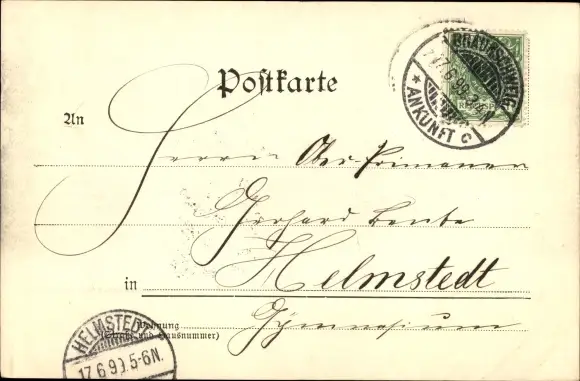 Postkarte
BRAUNSCHWEIG
17.6.99
* ANKUNFT c
An
Herrn Ober-Primaner
Gerhard Lente
in Helmstedt
Gymnasium
Wohnung
(Straße und Hausnummer)
HELMSTEDT
17.6.99.5-6N.